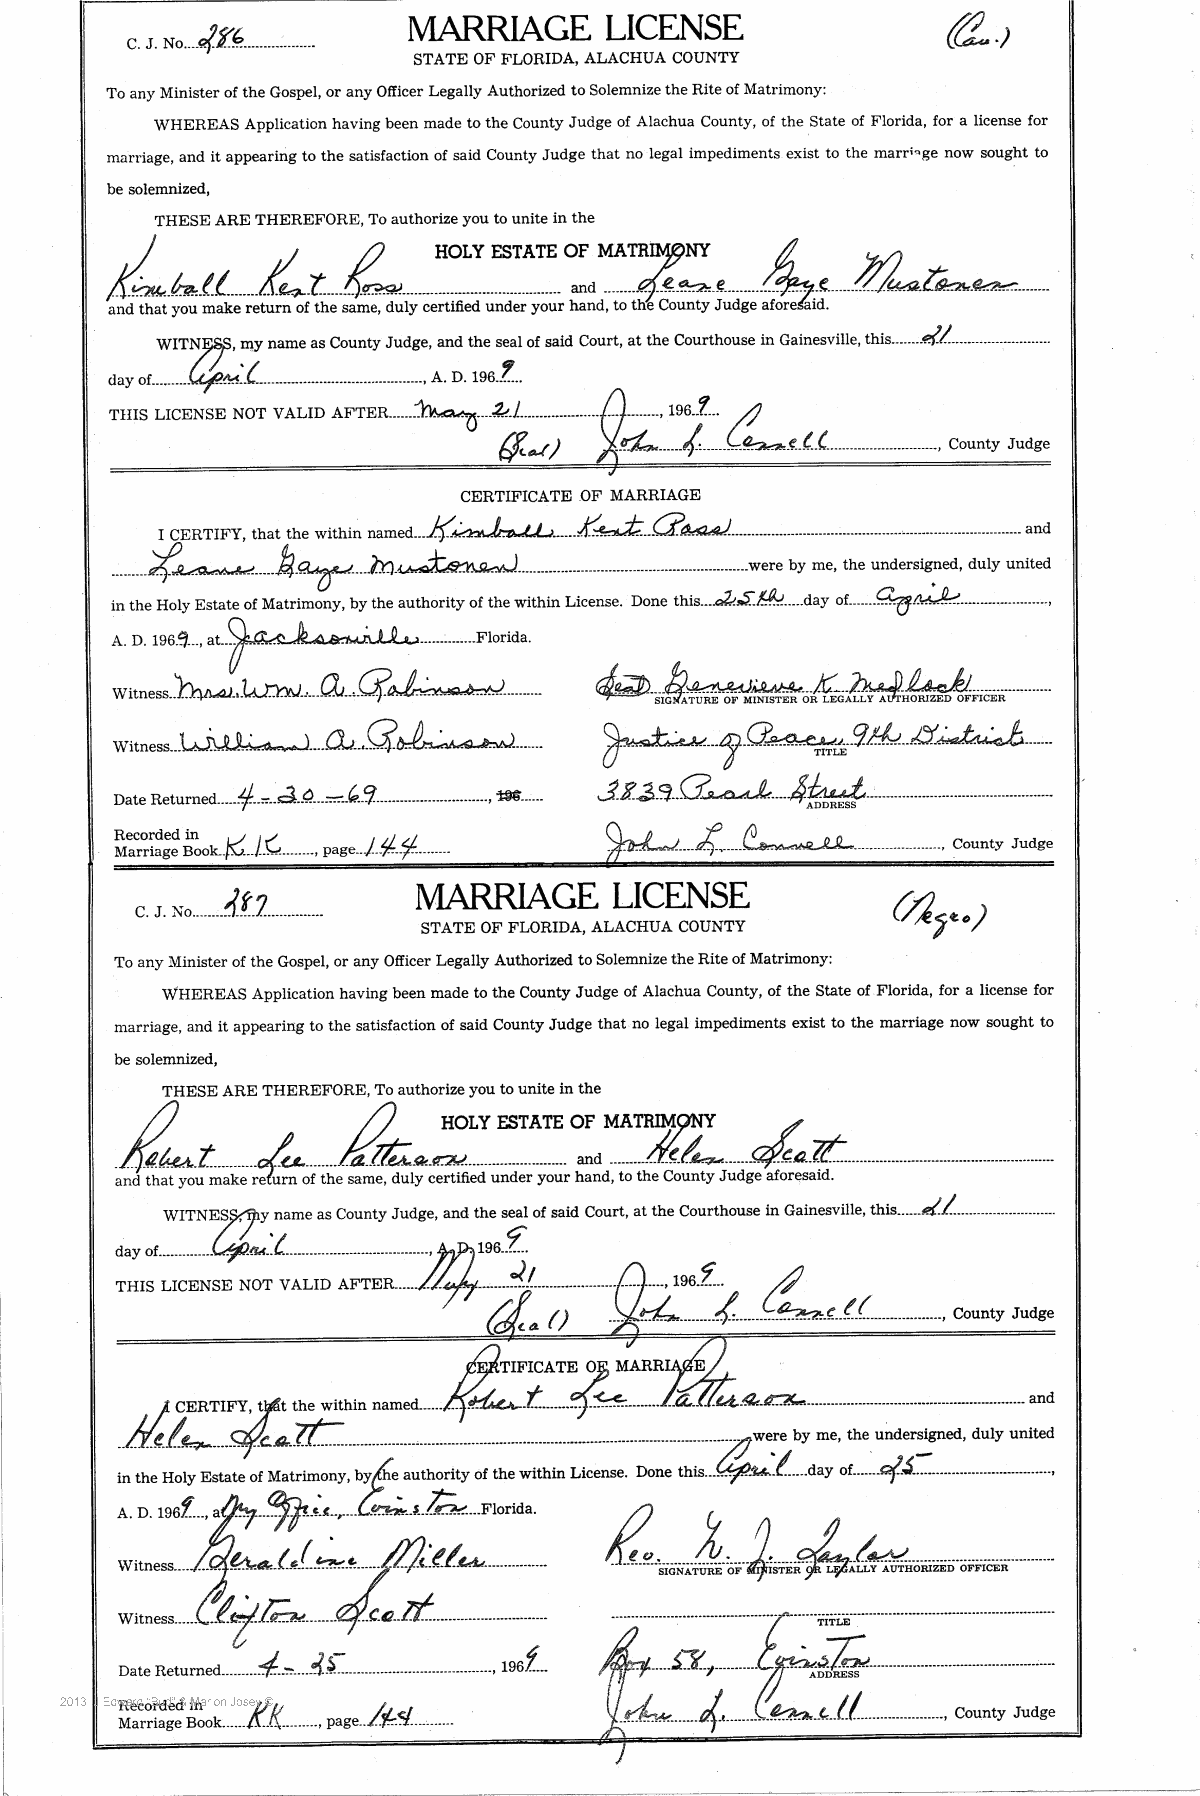 C. J. No. 286 MARRIAGE LICENSE (Cau.)
STATE OF FLORIDA, ALACHUA COUNTY
To any Minister of the Gospel, or any Officer Legally Authorized to Solemnize the Rite of Matrimony:
WHEREAS Application having been made to the County Judge of Alachua County, of the State of Florida, for a license for
marriage, and it appearing to the satisfaction of said County Judge that no legal impediments exist to the marriage now sought to
be solemnized,
THESE ARE THEREFORE, To authorize you to unite in the
HOLY ESTATE OF MATRIMONY
Kimball Kent Ross and Leane Gaye Mustonen
and that you make return of the same, duly certified under your hand, to the County Judge aforesaid.
WITNESS, my name as County Judge, and the seal of said Court, at the Courthouse in Gainesville, this 21
day of April, A. D. 1969
THIS LICENSE NOT VALID AFTER May 21, 1969
(Seal) John L. Connell, County Judge
CERTIFICATE OF MARRIAGE
I CERTIFY, that the within named Kimball Kent Ross and
Leane Gaye Mustonen were by me, the undersigned, duly united
in the Holy Estate of Matrimony, by the authority of the within License. Done this 25th day of April,
A. D. 1969, at Jacksonville Florida.
Witness Mrs. Wm. A. Robinson Seal Genevieve K. Medlock
SIGNATURE OF MINISTER OR LEGALLY AUTHORIZED OFFICER
Witness William A. Robinson Justice of Peace, 9th District
TITLE
Date Returned 4-30-69, 196 3839 Pearl Street
ADDRESS
Recorded in
Marriage Book KK, page 144 John L. Connell, County Judge
C. J. No. 287 MARRIAGE LICENSE (Negro)
STATE OF FLORIDA, ALACHUA COUNTY
To any Minister of the Gospel, or any Officer Legally Authorized to Solemnize the Rite of Matrimony:
WHEREAS Application having been made to the County Judge of Alachua County, of the State of Florida, for a license for
marriage, and it appearing to the satisfaction of said County Judge that no legal impediments exist to the marriage now sought to
be solemnized,
THESE ARE THEREFORE, To authorize you to unite in the
HOLY ESTATE OF MATRIMONY
Robert Lee Patterson and Helen Scott
and that you make return of the same, duly certified under your hand, to the County Judge aforesaid.
WITNESS, my name as County Judge, and the seal of said Court, at the Courthouse in Gainesville, this 21
day of April, A. D. 1969
THIS LICENSE NOT VALID AFTER May 21, 1969
(Seal) John L. Connell, County Judge
CERTIFICATE OF MARRIAGE
I CERTIFY, that the within named Robert Lee Patterson and
Helen Scott were by me, the undersigned, duly united
in the Holy Estate of Matrimony, by the authority of the within License. Done this April day of 25,
A. D. 1969, at My Office, Evinston Florida.
Witness Geraldine Miller Rev. N. J. Taylor
SIGNATURE OF MINISTER OR LEGALLY AUTHORIZED OFFICER
Witness Clifton Scott
TITLE
Date Returned 4-25, 1969 Box 58, Evinston
ADDRESS
2013
Recorded in
Marriage Book KK, page 144 John L. Connell, County Judge